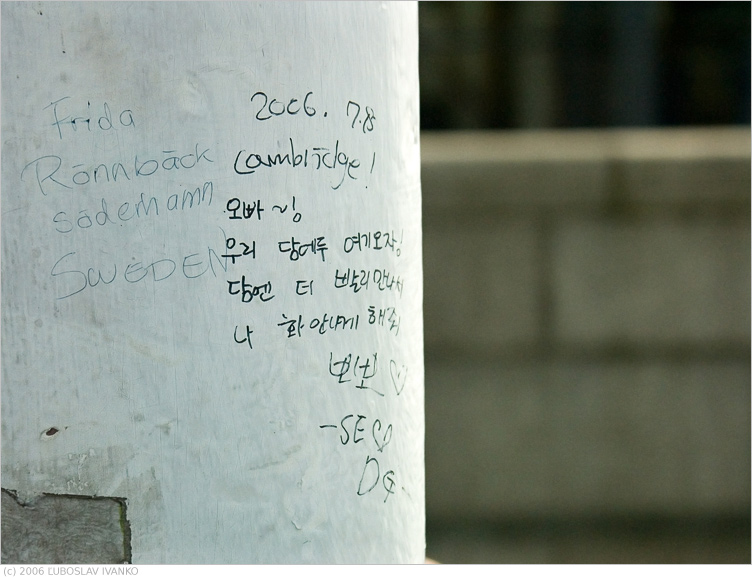 Frida
Rönnbäck
Södemamn
SWEDEN
2006. 7.
Cambridge!
오빠 ~
우리 담에두 여기오자!
담엔 더 빨리만나서
나 화 안나게 해줘
뽀뽀 ♡
-SE♡
D
(c) 2006 ĽUBOSLAV IVANKO